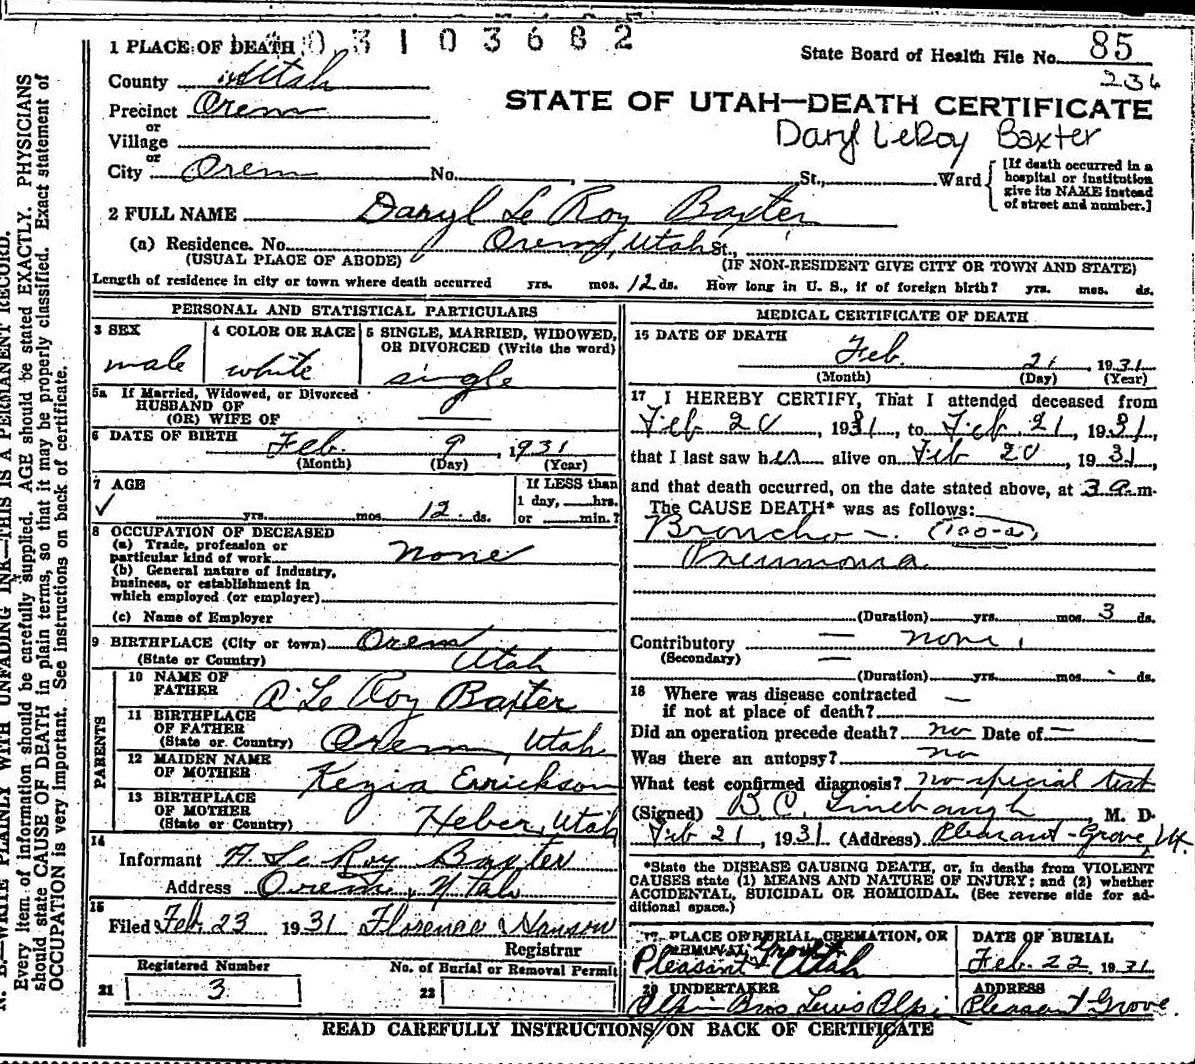 1 PLACE OF DEATH 0 3 1 0 3 6 8 2
State Board of Health File No. 85
236
County Utah
STATE OF UTAH—DEATH CERTIFICATE
Precinct Orem
Daryl LeRoy Baxter
or
Village
or
City Orem No. , St., Ward
[If death occurred in a hospital or institution give its NAME instead of street and number.]
2 FULL NAME Daryl Le Roy Baxter
(a) Residence. No. Orem, Utah St.,
(USUAL PLACE OF ABODE) (IF NON-RESIDENT GIVE CITY OR TOWN AND STATE)
Length of residence in city or town where death occurred yrs. mos. 12 ds. How long in U. S., if of foreign birth? yrs. mos. ds.
PERSONAL AND STATISTICAL PARTICULARS
3 SEX male
4 COLOR OR RACE white
5 SINGLE, MARRIED, WIDOWED, OR DIVORCED (Write the word) single
5a If Married, Widowed, or Divorced
HUSBAND OF
(OR) WIFE OF
6 DATE OF BIRTH Feb. 9, 1931
(Month) (Day) (Year)
7 AGE
✓ yrs. mos. 12 ds.
If LESS than
1 day, hrs.
or min.?
8 OCCUPATION OF DECEASED
(a) Trade, profession or
particular kind of work none
(b) General nature of industry,
business, or establishment in
which employed (or employer)
(c) Name of Employer
9 BIRTHPLACE (City or town) Orem
(State or Country) Utah
PARENTS
10 NAME OF
FATHER A. Le Roy Baxter
11 BIRTHPLACE
OF FATHER
(State or Country) Orem, Utah
12 MAIDEN NAME
OF MOTHER Kezia Errickson
13 BIRTHPLACE
OF MOTHER
(State or Country) Heber, Utah
14
Informant A Le Roy Baxter
Address Orem, Utah
15
Filed Feb. 23 1931 Florence Hanson
Registrar
Registered Number
21 3
No. of Burial or Removal Permit
22
MEDICAL CERTIFICATE OF DEATH
15 DATE OF DEATH
Feb. 21, 1931
(Month) (Day) (Year)
17 I HEREBY CERTIFY, That I attended deceased from
Feb 20, 1931, to Feb. 21, 1931,
that I last saw her alive on Feb 20, 1931,
and that death occurred, on the date stated above, at 3 a.m.
The CAUSE DEATH* was as follows:
Broncho - (100-a)
Pneumonia
(Duration) yrs. mos. 3 ds.
Contributory — none.
(Secondary) —
(Duration) yrs. mos. ds.
18 Where was disease contracted —
if not at place of death?
Did an operation precede death? no Date of —
Was there an autopsy? no
What test confirmed diagnosis? no special test
(Signed) B. C. Linebaugh, M. D.
Feb 21, 1931 (Address) Pleasant-Grove, Ut.
*State the DISEASE CAUSING DEATH, or, in deaths from VIOLENT
CAUSES state (1) MEANS AND NATURE OF INJURY; and (2) whether
ACCIDENTAL, SUICIDAL OR HOMICIDAL. (See reverse side for ad-
ditional space.)
PLACE OF BURIAL, CREMATION, OR
REMOVAL
Pleasant Grove Utah
DATE OF BURIAL
Feb. 22 1931
20 UNDERTAKER
Olpin Bros Lewis Olpin
ADDRESS
Pleasant-Grove.
READ CAREFULLY INSTRUCTIONS ON BACK OF CERTIFICATE
N. B.—WRITE PLAINLY WITH UNFADING INK—THIS IS A PERMANENT RECORD.
Every item of information should be carefully supplied. AGE should be stated EXACTLY. PHYSICIANS
should state CAUSE OF DEATH in plain terms, so that it may be properly classified. Exact statement of
OCCUPATION is very important. See instructions on back of certificate.